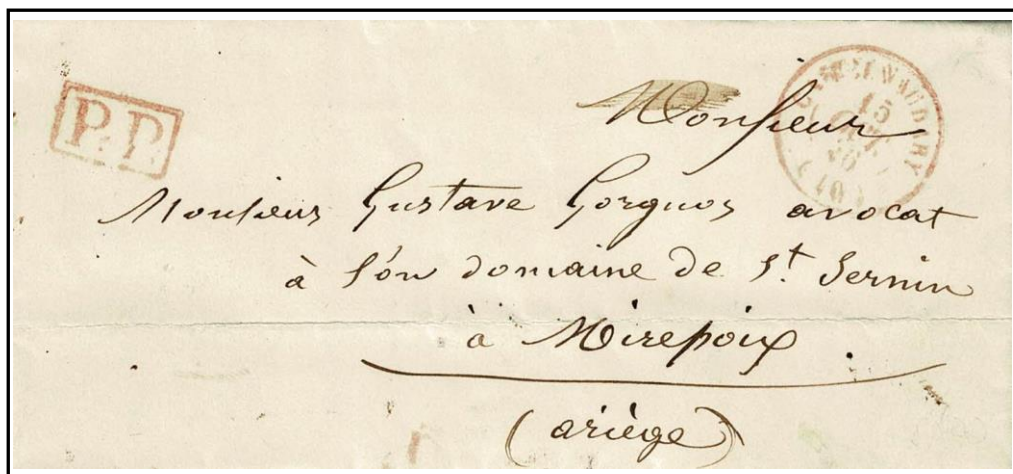 P.P.
15
(10)
Monsieur
Monsieur Gustave Gorguos avocat
à son domaine de St. Sernin
à Mirepoix.
(ariège)